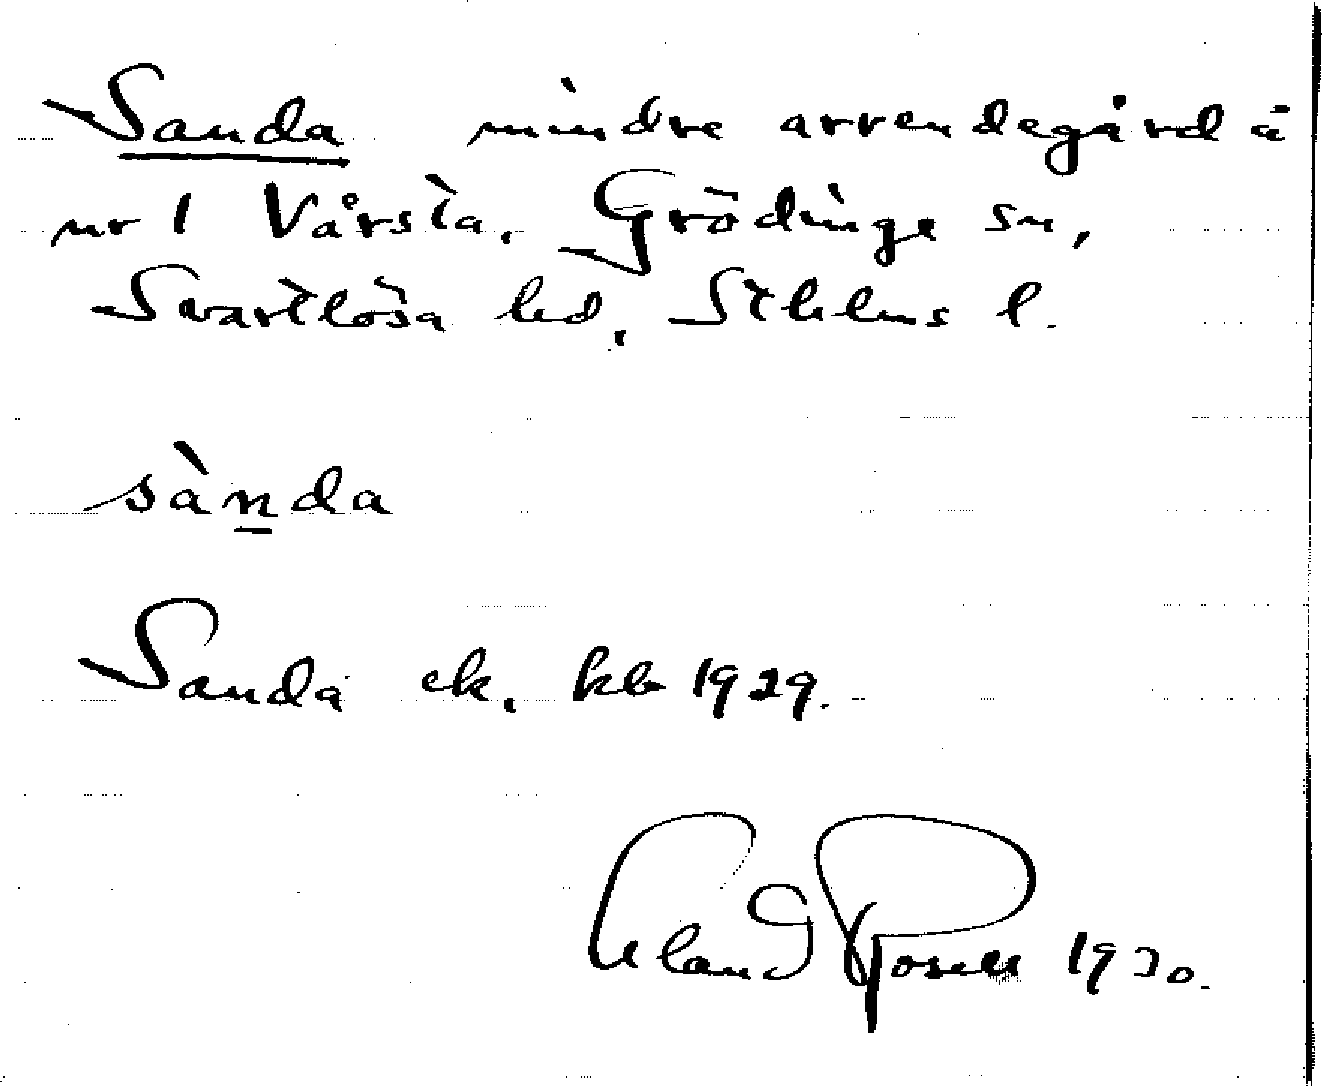 Sanda mindre arrendegård å
nr 1 Vårsta, Grödinge sn,
Svartlösa hd, Sthlms l.
sànda
Sanda ek. kb 1929.
Erland Rosell 1930.